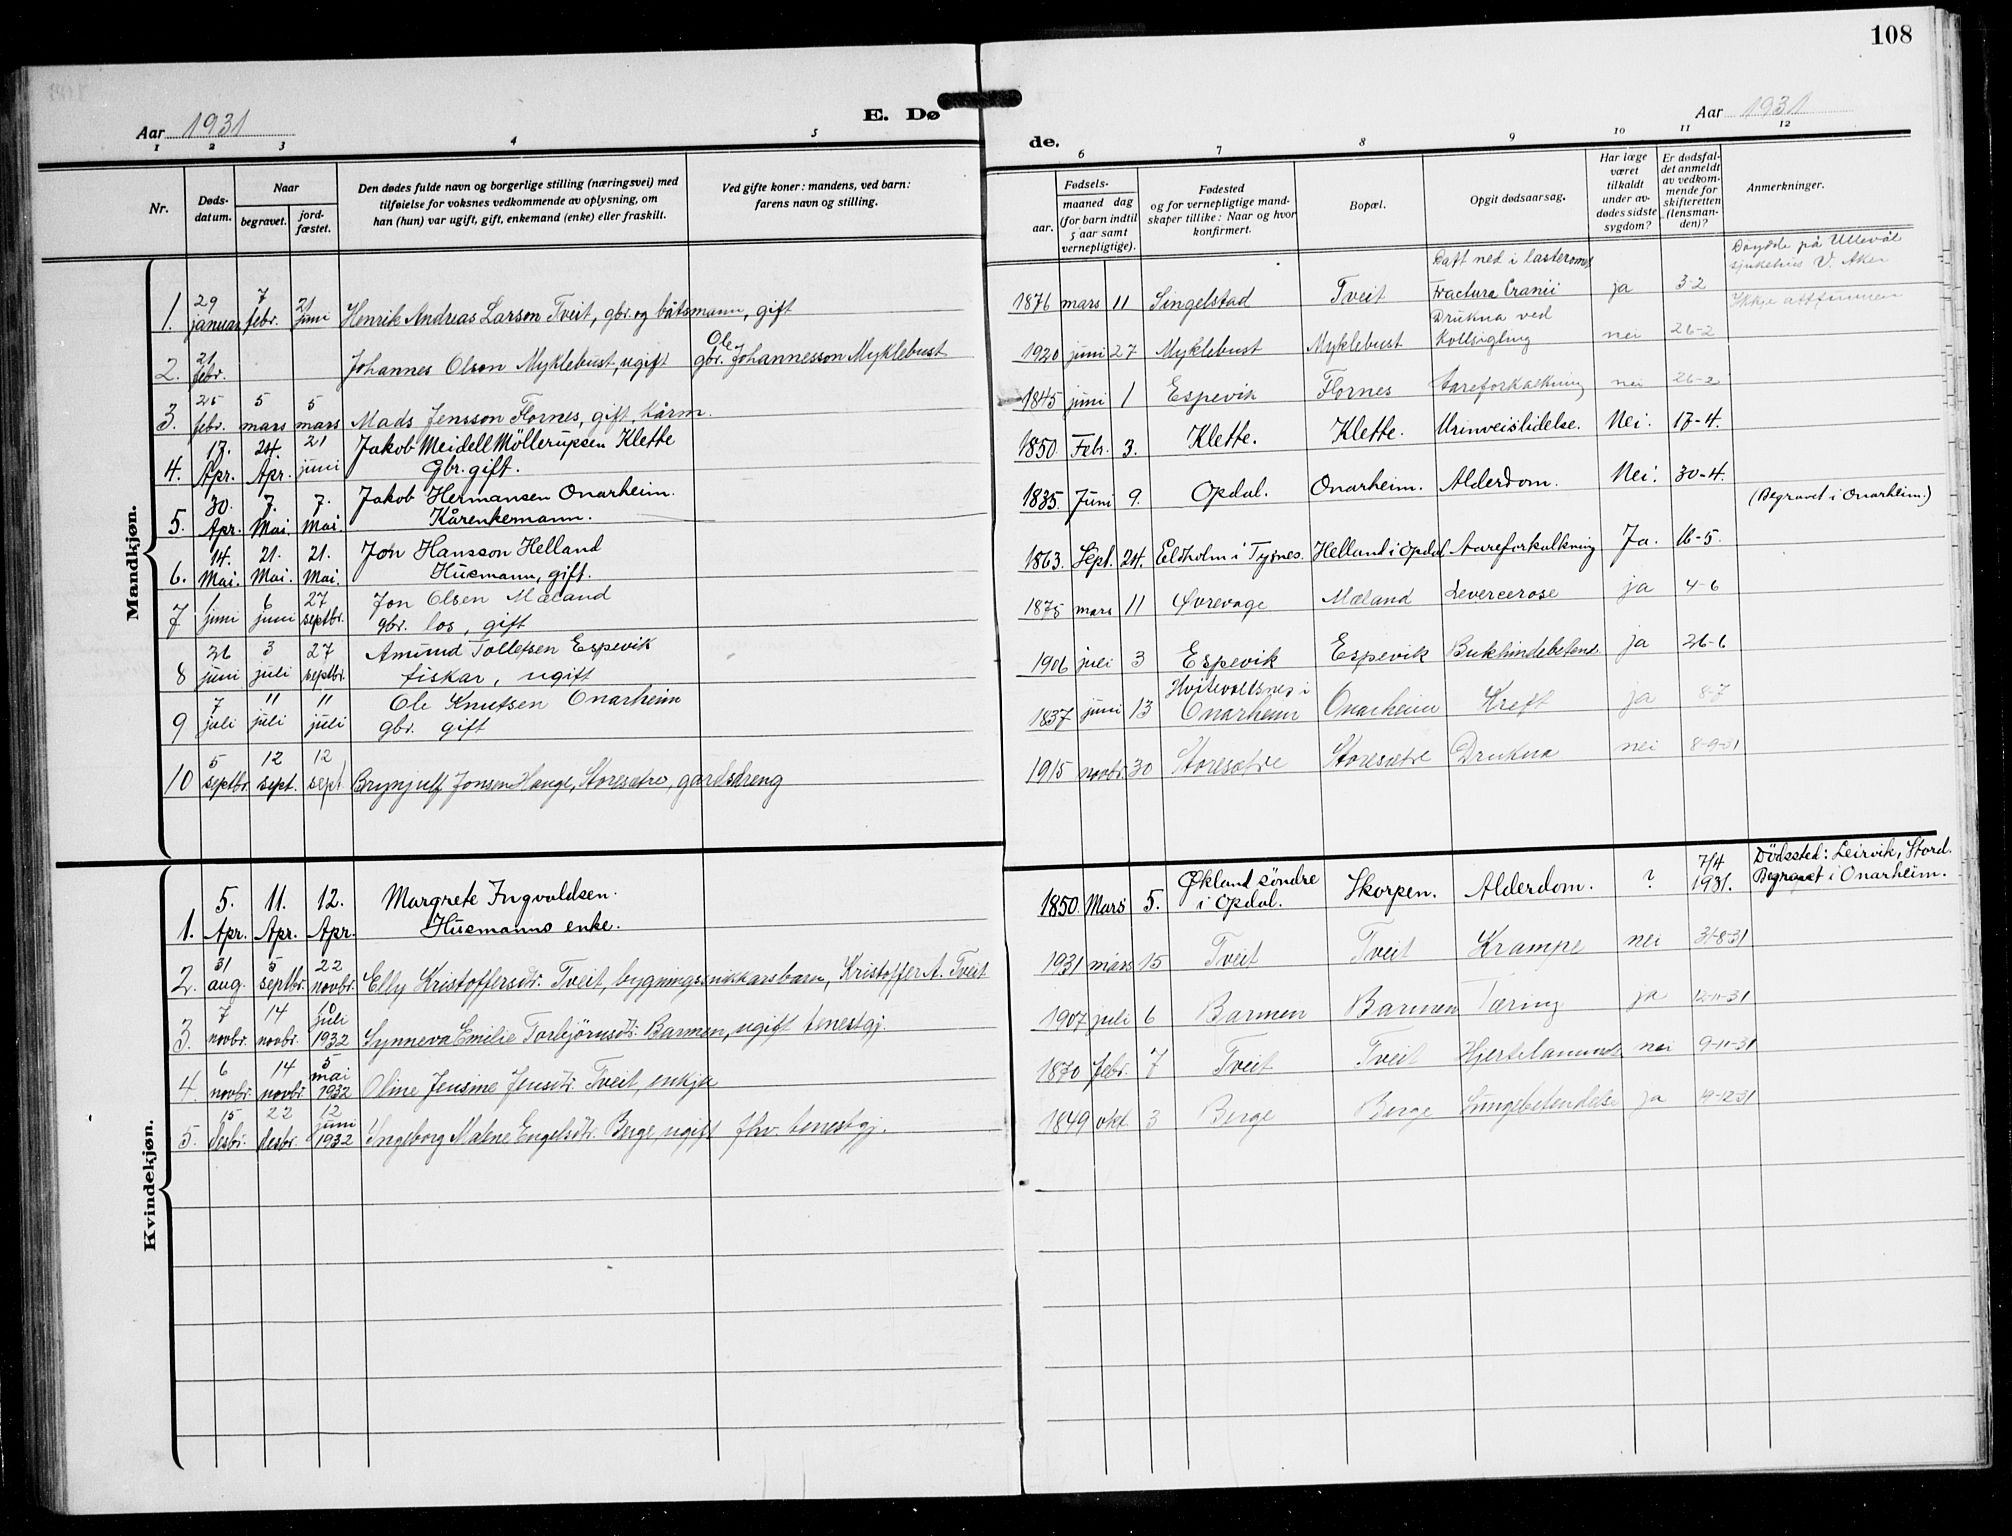 108
Aar 1931
E. Dø
de.
Aar 1931
1 2 3 4 5 6 7 8 9 10 11 12
Nr.
Døds-
datum.
Naar
begravet.
jord-
fæstet.
Den dødes fulde navn og borgerlige stilling (næringsvei) med
tilføielse for voksnes vedkommende av oplysning, om
han (hun) var ugift, gift, enkemand (enke) eller fraskilt.
Ved gifte koner: mandens, ved barn:
farens navn og stilling.
Fødsels-
aar. maaned dag
(for barn indtil
5 aar samt
vernepligtige).
Fødested
og for vernepligtige mand-
skaper tillike: Naar og hvor
konfirmert.
Bopæl.
Opgit dødsaarsag.
Har læge
været
tilkaldt
under av-
dødes sidste
sygdom?
Er dødsfal-
det anmeldt
av vedkom-
mende for
skifteretten
(lensman-
den)?
Anmerkninger.
Mandkjøn.
1. 29 januar 7 febr. 21 juni Henrik Andreas Larson Tveit, gbr. og båtsmann, gift 1876 mars 11 Singelstad Tveit Datt ned i lasteromet Fractura Cranii ja 3-2 Døydde på Ullevål sjukehus V. Aker
2. 21 febr. Johannes Olson Myklebust, ugift gbr. Ole Johannesson Myklebust 1920 juni 27 Myklebust Myklebust Drukna ved Kollsigling nei 26-2 Ikkje attfunnen
3. 25 febr. 5 mars 5 mars Mads Jensson Flornes, gift, kårm. 1845 juni 1 Espevik Flornes Aareforkalkning nei 26-2
4. 17. Apr. 24. Apr. 21 juni Jakob Meidell Möllerupsen Klette Gbr. gift. 1850 Febr. 3. Klette. Klette. Urinveislidelse. Nei. 17-4.
5. 30. Apr. 7. Mai. 7. Mai. Jakob Hermansen Onarheim. Kårenkemann. 1835. Juni 9. Opdal. Onarheim. Alderdom. Nei. 30-4. (Begravet i Onarheim.)
6. 14. Mai. 21. Mai. 21. Mai. Jon Hansson Helland Husmann, gift. 1863. Sept. 24. Eldholm i Tysnes. Helland i Opdal Aareforkalkning Ja. 16-5.
7 1 juni 6 juni 27 septbr. Jon Olsen Mæland gbr. los, gift 1875 mars 11 Øvrevage Mæland Levercerose ja 4-6
8 26 juni 3 juli 27 septbr. Amund Tollefsen Espevik fiskar, ugift 1906 juli 3 Espevik Espevik Bukhindebetend. ja 26-6
9 7 juli 11 juli 11 juli Ole Knutsen Onarheim gbr. gift 1837 juni 13 Onarheim Onarheim Kreft ja 8-7
10 5 septbr. 12 sept. 12 sept. Brynjulf Jonsen Hauge, Storesætre, gardsdreng 1915 novbr. 30 Storesætre Storesætre Drukna nei 8-9-31
Kvindekjøn.
1. 5. Apr. 11. Apr. 12. Apr. Margrete Ingvaldsen. Husmanns enke. 1850. Mars 5. Økland söndre i Opdal. Skorpen. Alderdom. ? 7/4 1931. Dödssted: Leirvik, Stord. Begravet i Onarheim.
2. 31 aug. 5 septbr. 22 novbr. Elly Kristoffersdtr. Tveit, bygningssnikkarsbarn, Kristoffer A. Tveit 1931 mars 15 Tveit Tveit Krampe nei 31-8-31
3. 7 novbr. 14 novbr. 10 juli 1932 Synneva Emilie Torbjörnsdtr. Barmen, ugift tenestgj. 1907 juli 6 Barmen Barmen Tæring ja 12-11-31
4. 6 novbr. 14 novbr. 5 mai 1932 Oline Jensine Jensdtr. Tveit, enkja 1870 febr. 7 Tveit Tveit Hjertelammelse nei 9-11-31
5. 15 desbr. 22 desbr. 12 juni 1932 Ingeborg Malene Engelsdtr. Berge, ugift fhv. tenestgj. 1849 okt. 3 Berge Berge Lungebetendelse ja 19-12-31